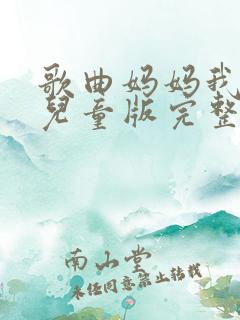 歌曲妈妈我
兒童版完整
南山堂
未经同意禁止转载